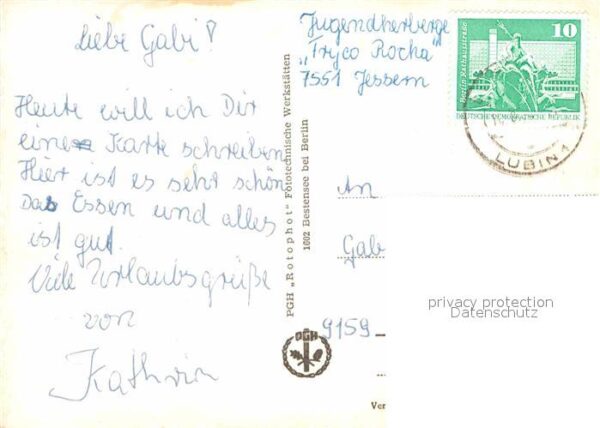 Liebe Gabi!
Heute will ich Dir
eine Karte schreiben
Hier ist es sehr schön
Das Essen und alles
ist gut.
Viele Urlaubsgrüße
von
Kathrin
PGH „Rotophot“ Fototechnische Werkstätten
1602 Bestensee bei Berlin
PGH
Jugendherberge
„Tryco Rocha“
7551 Jessern
An
Gab
9159
Ver
10
Berlin, Rathausstraße
DEUTSCHE DEMOKRATISCHE REPUBLIK
LÜBBEN 1
privacy protection
Datenschutz